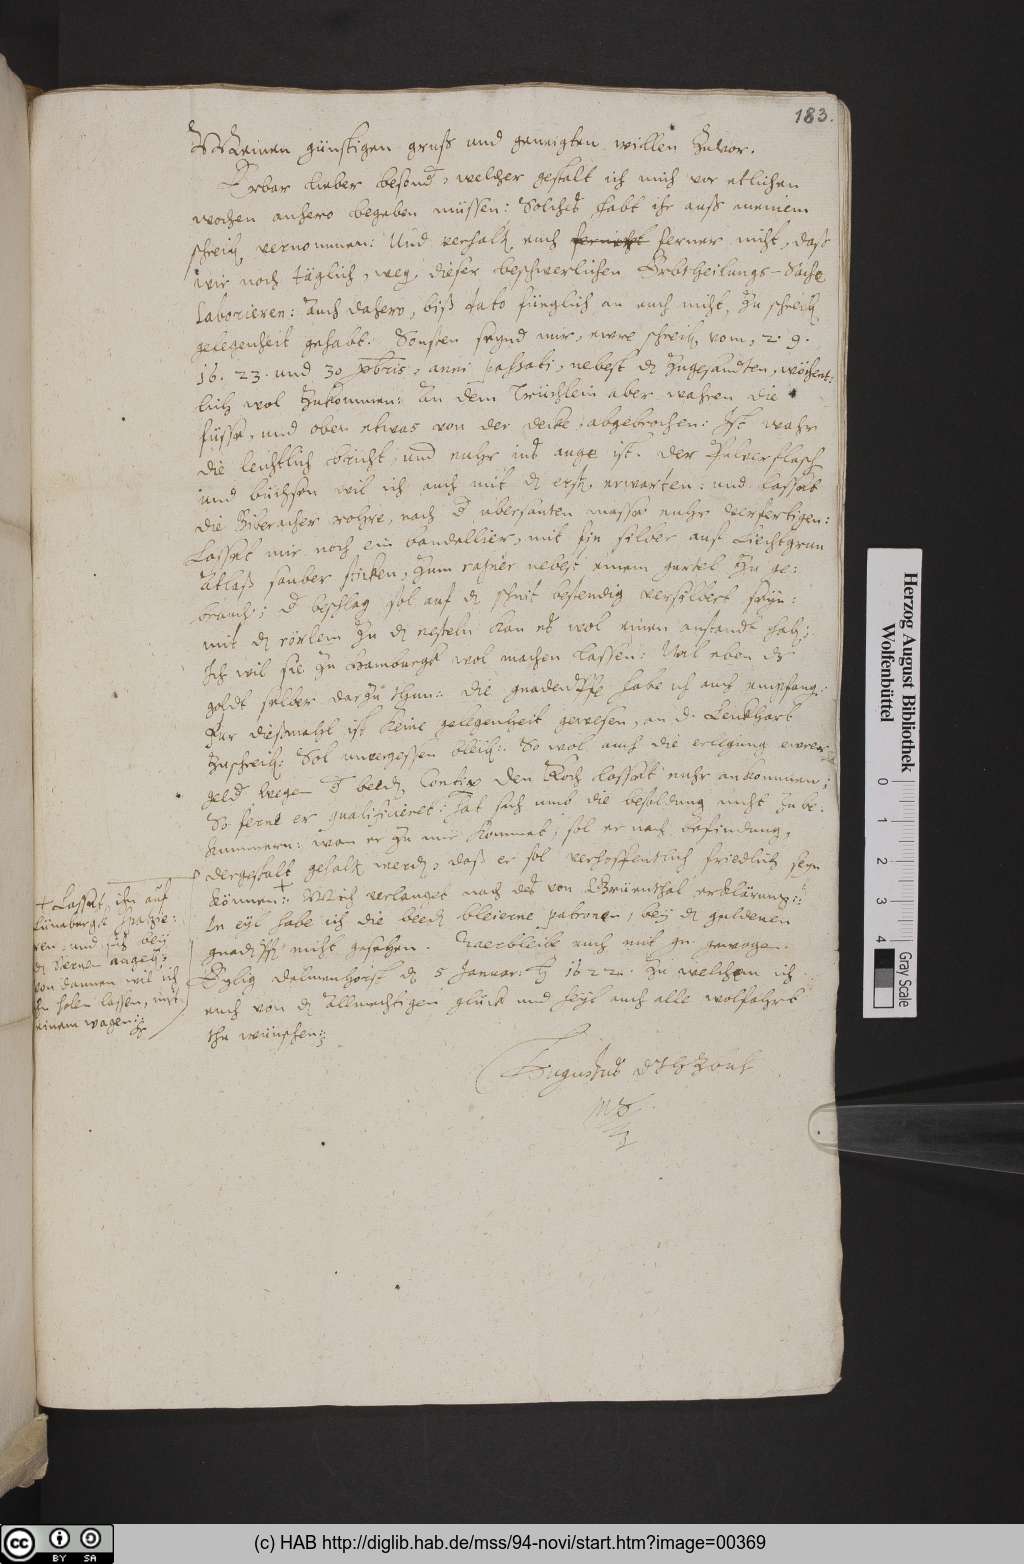 183.
Meinen günstigen gruß und geneigten willen zuvor.
Erbar lieber besond, welcher gestalt ich mich vor etlichen
wochen anhero begeben müssen: Solches habt ihr auß meinem
schreib. vernommen: Und verhalt euch ferner nicht, daß
wir noch täglich, weg. dieser beschwerlichen Erbtheilungs-Sache
Laborieren: Auch dahero, biß dato füeglich an euch nicht, zu schreib.
gelegenheit gehabt. Sonsten seynd mir, ewre schreib. vom, 2. 9.
16. 23. und 30 xbris, anni passati, nebest d zugesandten, wöchent:
lich wol zukommen: An dem Trüchlein aber wahren die
füsse, und oben etwas von der decke, abgebrochen: Ist wahr
die leichtlich bricht, und nuhr ins auge ist. Der Pulverflasch
und büchsen wil ich auch mit d erst. erwarten: und lasset
die Biberacher rohre, nach d übersanten masse nuhr verfertigen:
Lasset mir noch ein bandallier, mit fin silber auf Liechtgrün
Atlaß sauber sticken, zum rapier nebest einem gurtel zu ge:
brauch.: d beschlag sol auf d schnit bestendig versilbert seyn:
mit d rörlein zu d nesteln kan es wol einen anstandt hab.:
Ich wil sie zu Hamburgk wol machen lassen: Wil eben dz
goldt selber darzu thun: die gnaden habe ich auch empfang.:
Für dießmahl ist keine gelegenheit gewesen, an d. Lenkhart
zuschreib: Sol unvergessen bleib: So wol auch die erlegung ewres
geld wegen d beed. Den Koch lasset nuhr ankommen;
So ferne er qualificieret: hat sich umb die besoldung nicht zu be:
kummern: wan er zu mir kommet, sol er nach befindung,
dergestalt gehalt. werd., daß er sol verhoffentlich friedlich seyn
können: Mich verlanget nach des von Grüenthal erklärung:
In eyl habe ich die beed. bleierne patronen, bey d guldenen
gnad. nicht gesehen. Verbleibe euch mit gn. gewogen.
Eylig Delmenhorst d 5 Januar: 1622. Zu welchem ich
euch von d Allmechtigen glück und heyl auch alle wolfahrt
thu wünschen:
Augustus
+ Lasset, ihn auf
Lüneburgk spatzie:
ren, und sich bey
d Sternen angeb.,
von dannen wil ich
ihn holen lassen, mit
einem wagen:
Herzog August Bibliothek
Wolfenbüttel
0 1 2 3 4
Gray Scale
cc BY SA
(c) HAB http://diglib.hab.de/mss/94-novi/start.htm?image=00369